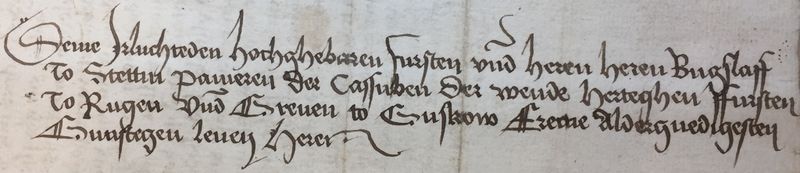 Deme Irluchteden hochghebaren fursten vnd heren heren Bugslaff
To Stettin pameren der Cassuben der wende Herteghen Ffursten
To Rugen vnd Greuen to Guskow Ereme aldergnedigesten
Gunstegen leuen heren